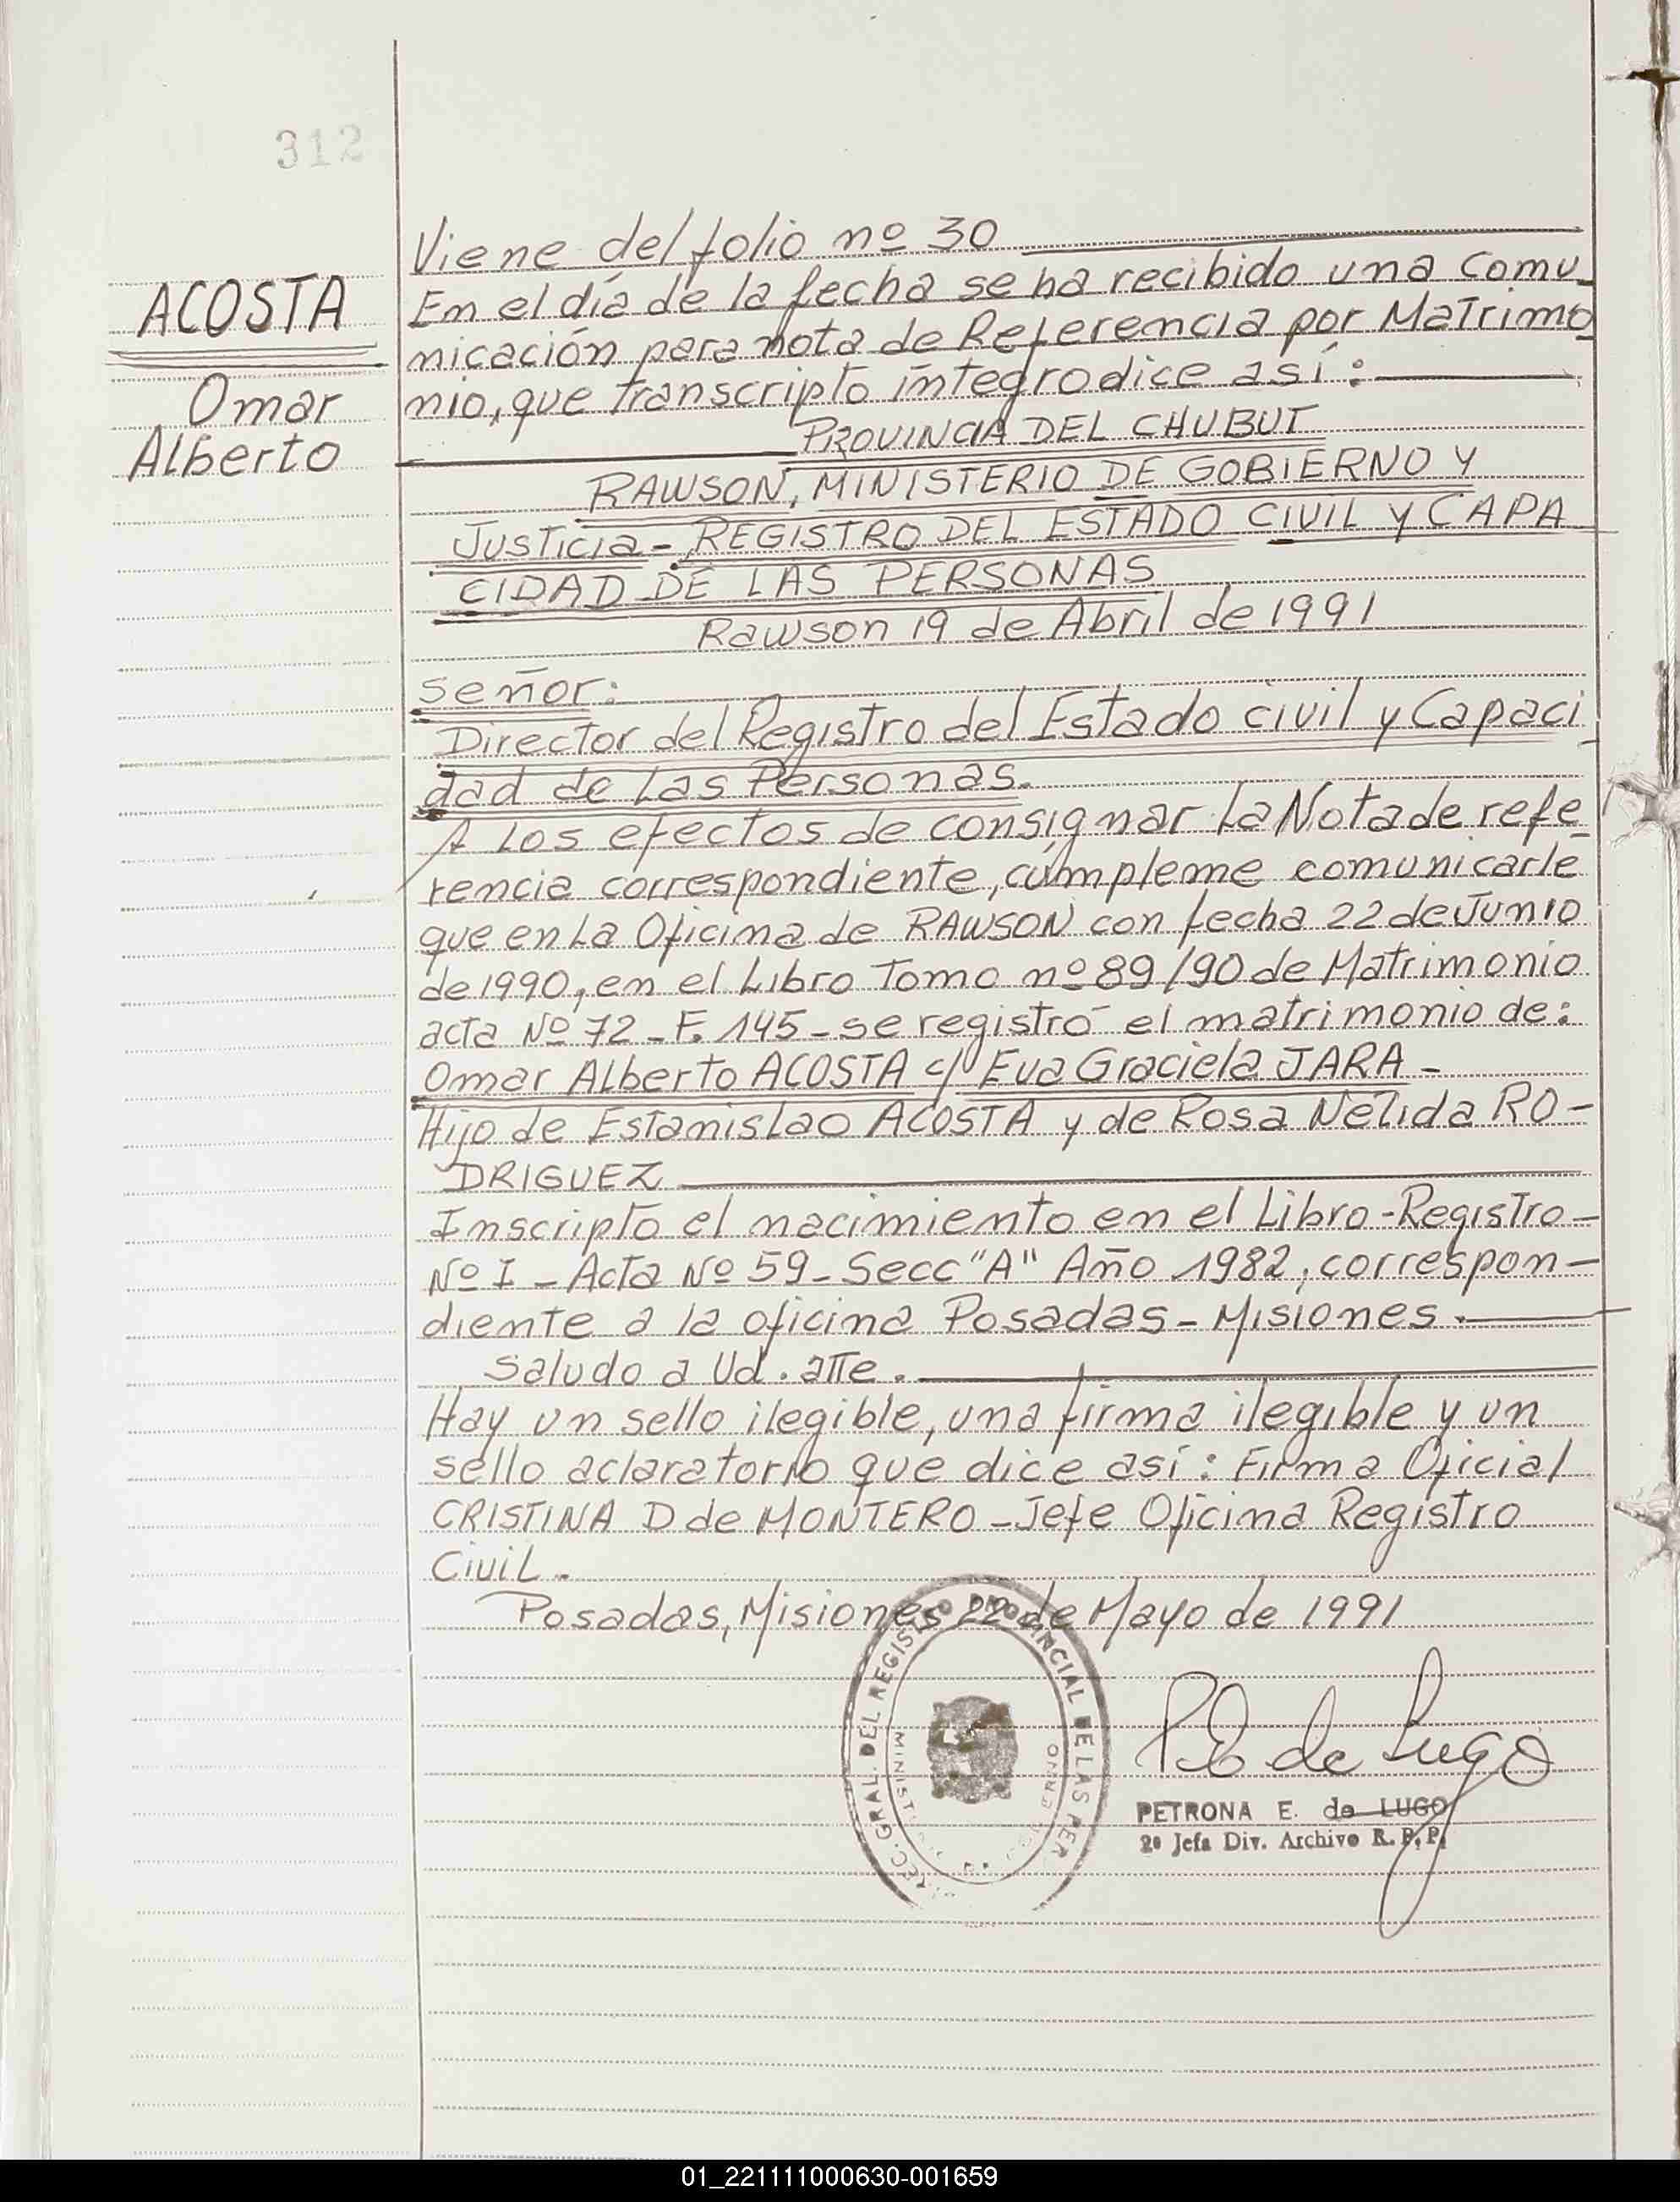 312
ACOSTA
Omar
Alberto
Viene del folio nº 30
En el día de la fecha se ha recibido una comu_
nicación para nota de Referencia por Matrimo_
nio, que transcripto íntegro dice así:
PROVINCIA DEL CHUBUT
RAWSON, MINISTERIO DE GOBIERNO Y
JUSTICIA - REGISTRO DEL ESTADO CIVIL Y CAPA
CIDAD DE LAS PERSONAS
Rawson 19 de Abril de 1991
señor:
Director del Registro del Estado civil y Capaci_
dad de Las Personas.
A Los efectos de consignar La Nota de refe_
rencia correspondiente, cúmpleme comunicarle
que en La Oficina de RAWSON con fecha 22 de Junio
de 1990, en el Libro Tomo nº 89/90 de Matrimonio
acta Nº 72 - F. 145 - se registró el matrimonio de:
Omar Alberto ACOSTA c/ Eva Graciela JARA -
Hijo de Estanislao ACOSTA y de Rosa Nélida RO-
DRIGUEZ
Inscripto el nacimiento en el Libro-Registro-
Nº I - Acta Nº 59 - Secc "A" Año 1982, correspon-
diente a la oficina Posadas - Misiones.
Saludo a Ud. atte.
Hay un sello ilegible, una firma ilegible y un
sello aclaratorio que dice así: Firma Oficial
CRISTINA D de MONTERO - Jefe Oficina Registro
Civil.
Posadas, Misiones 22 de Mayo de 1991
GRAL. DEL REGISTRO PROVINCIAL DE LAS PER
P E de Lugo
PETRONA E. de LUGO
2º Jefa Div. Archivo R. P. P.
01_221111000630-001659